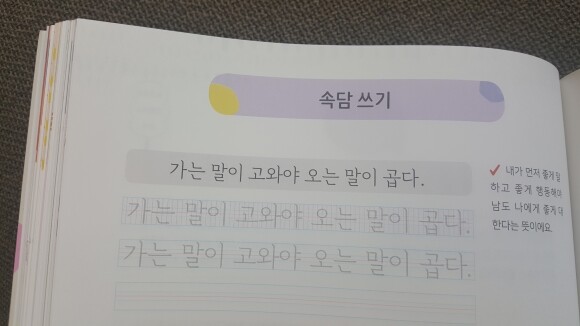 속담 쓰기
가는 말이 고와야 오는 말이 곱다.
가는 말이 고와야 오는 말이 곱다.
가는 말이 고와야 오는 말이 곱다.
✓ 내가 먼저 좋게 말
하고 좋게 행동해야
남도 나에게 좋게 대
한다는 뜻이에요.